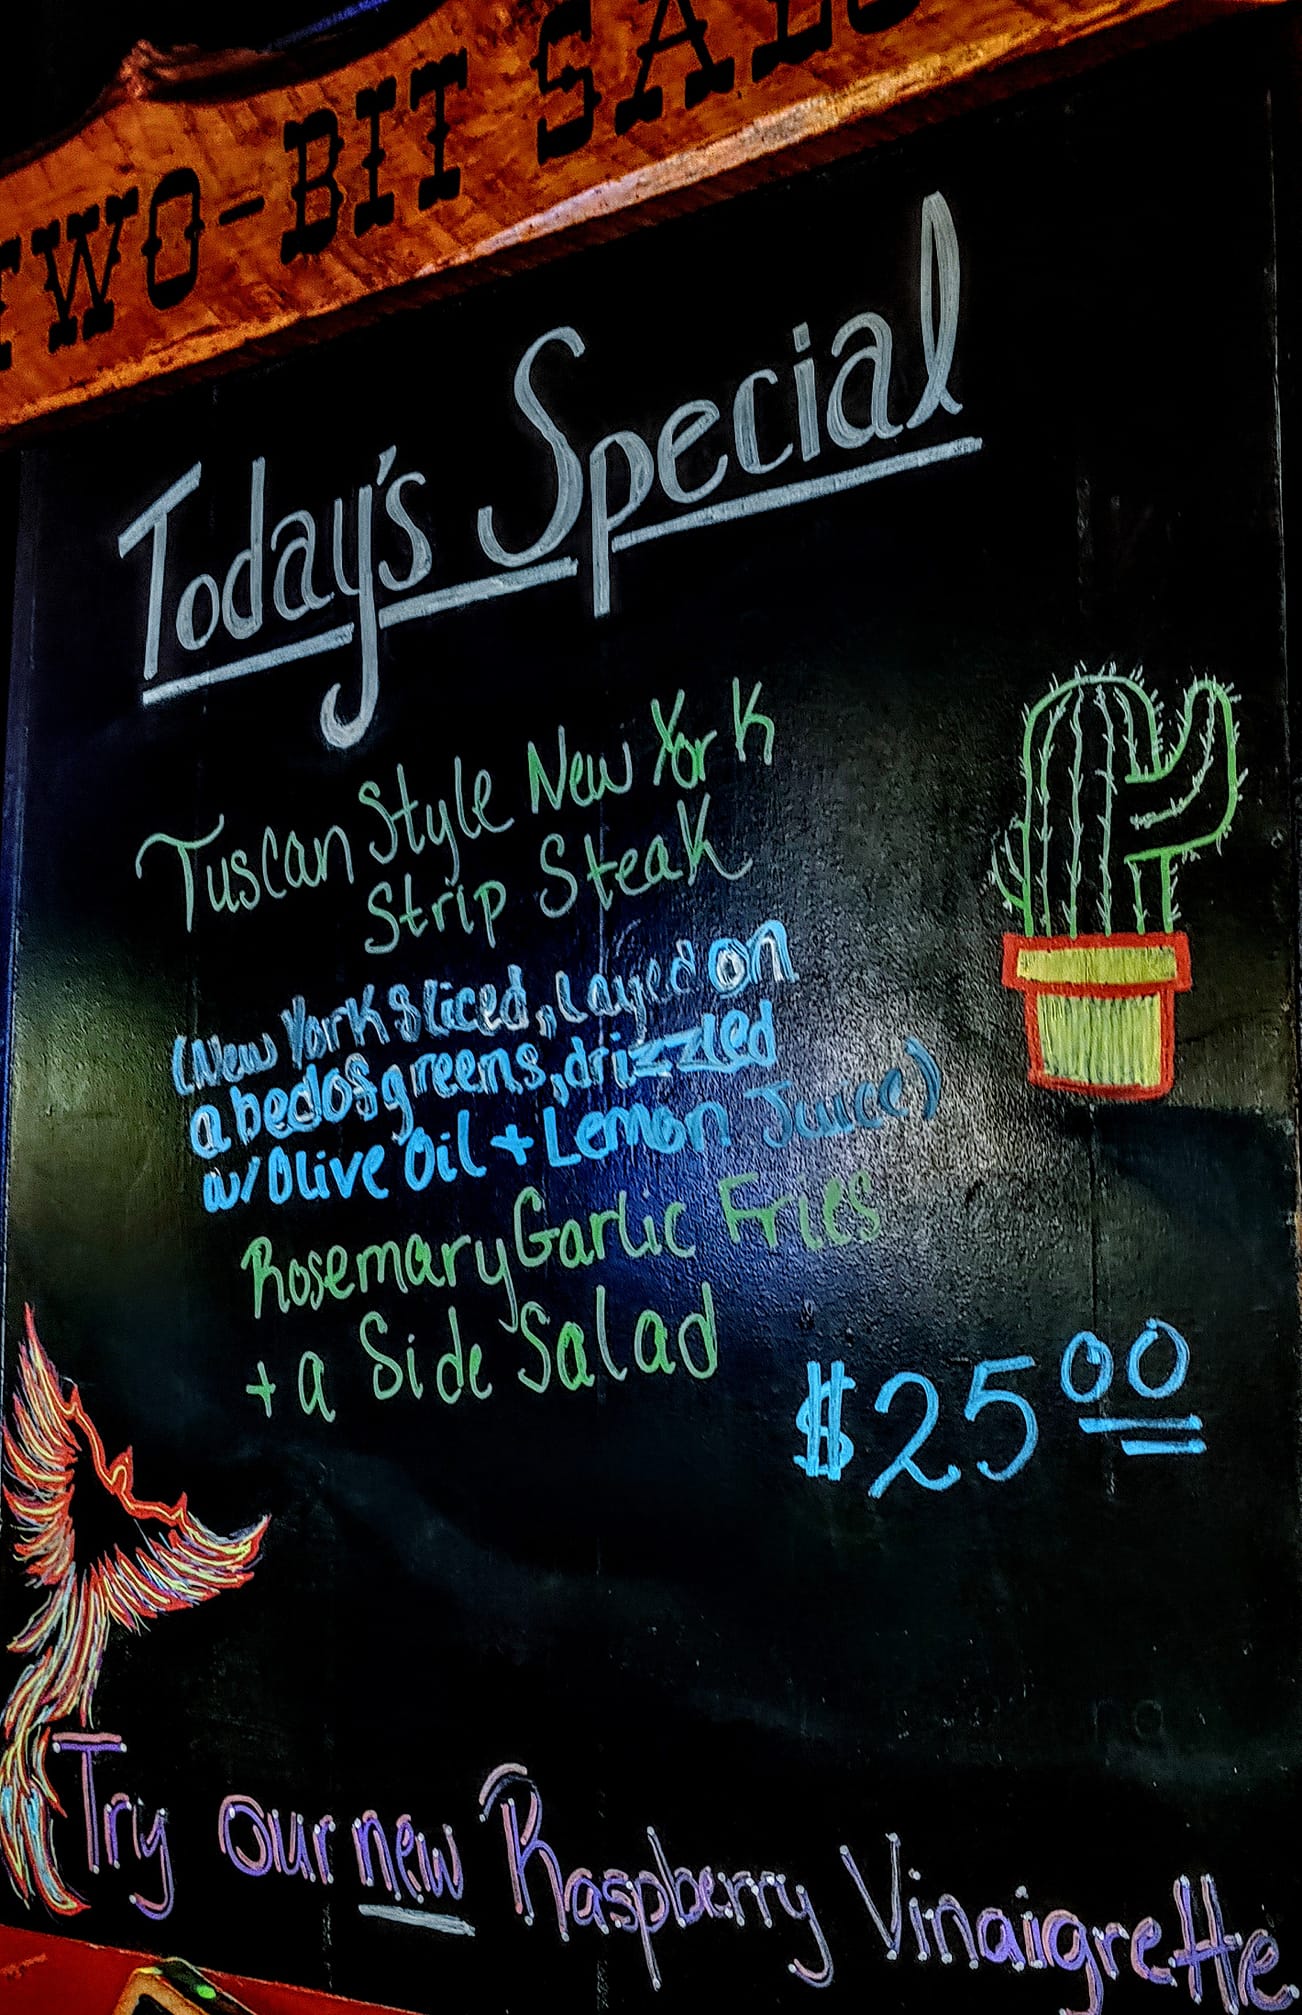 TWO-BIT SALO
Today's Special
Tuscan Style New York
Strip Steak
(New York sliced, Layed on
a bed of greens, drizzled
w/ Olive Oil + Lemon Juice)
Rosemary Garlic Fries
+ a Side Salad
$25.00
Try our new Raspberry Vinaigrette